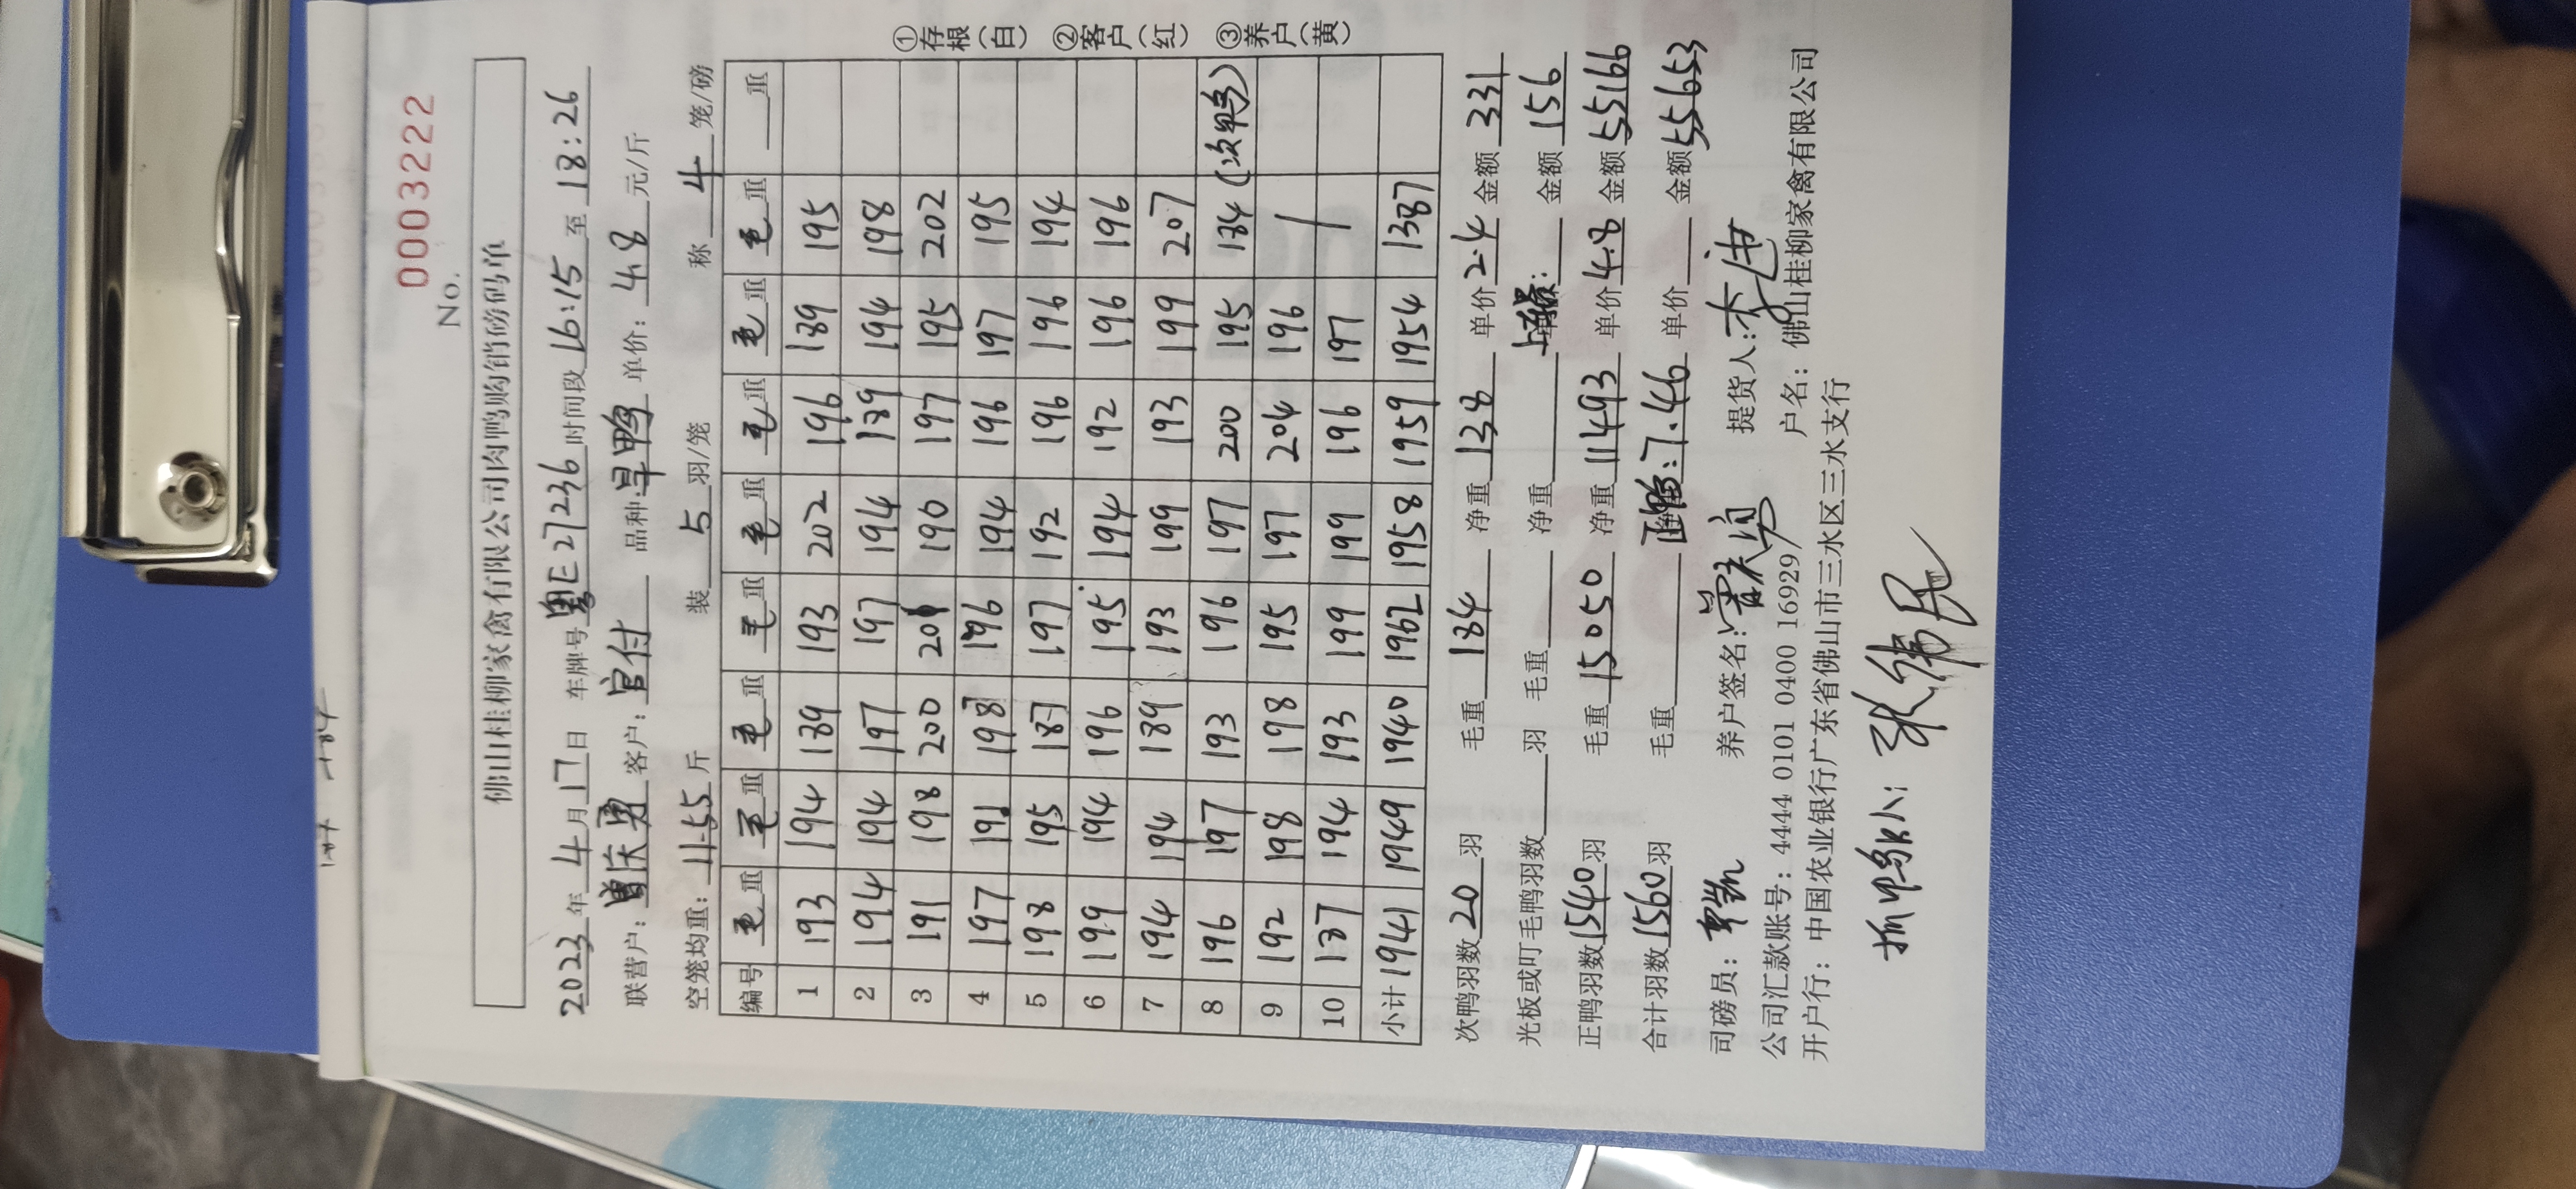 No. 0003222
佛山桂柳家禽有限公司肉鸭购销磅码单
2023年4月17日 车牌号粤E27236 时间段16:15至18:26
联营户：曾庆勇 客户：官付 品种旱鸭 单价：4.8元/斤
空笼均重：11.55斤 装5羽/笼 称4笼/磅
编号 毛重 毛重 毛重 毛重 毛重 毛重 毛重 毛重 重
1 193 194 189 193 202 196 189 195
2 194 194 197 197 194 189 194 198
3 191 198 200 201 190 197 195 202
4 197 191 198 196 194 196 197 195
5 198 195 187 197 192 196 196 194
6 199 194 196 195 194 192 196 196
7 194 194 189 193 199 193 199 207
8 196 197 193 196 197 200 195 184（次鸭）
9 192 198 198 195 197 204 196 /
10 187 194 193 199 199 196 197
小计 1941 1949 1940 1962 1958 1959 1954 1387
次鸭羽数20羽 毛重184 净重138 单价2.4 金额331
光板或叮毛鸭羽数 羽 毛重 净重 金额156
正鸭羽数1540羽 毛重15050 净重11493 单价4.8 金额55166
合计羽数1560羽 毛重 正鸭：7.46 单价 金额55653
司磅员： 养户签名： 提货人：
公司汇款账号：4444 0101 0400 16929 户名：佛山桂柳家禽有限公司
开户行：中国农业银行广东省佛山市三水区三水支行
抓鸭队：张伟民
①存根（白） ②客户（红） ③养户（黄）